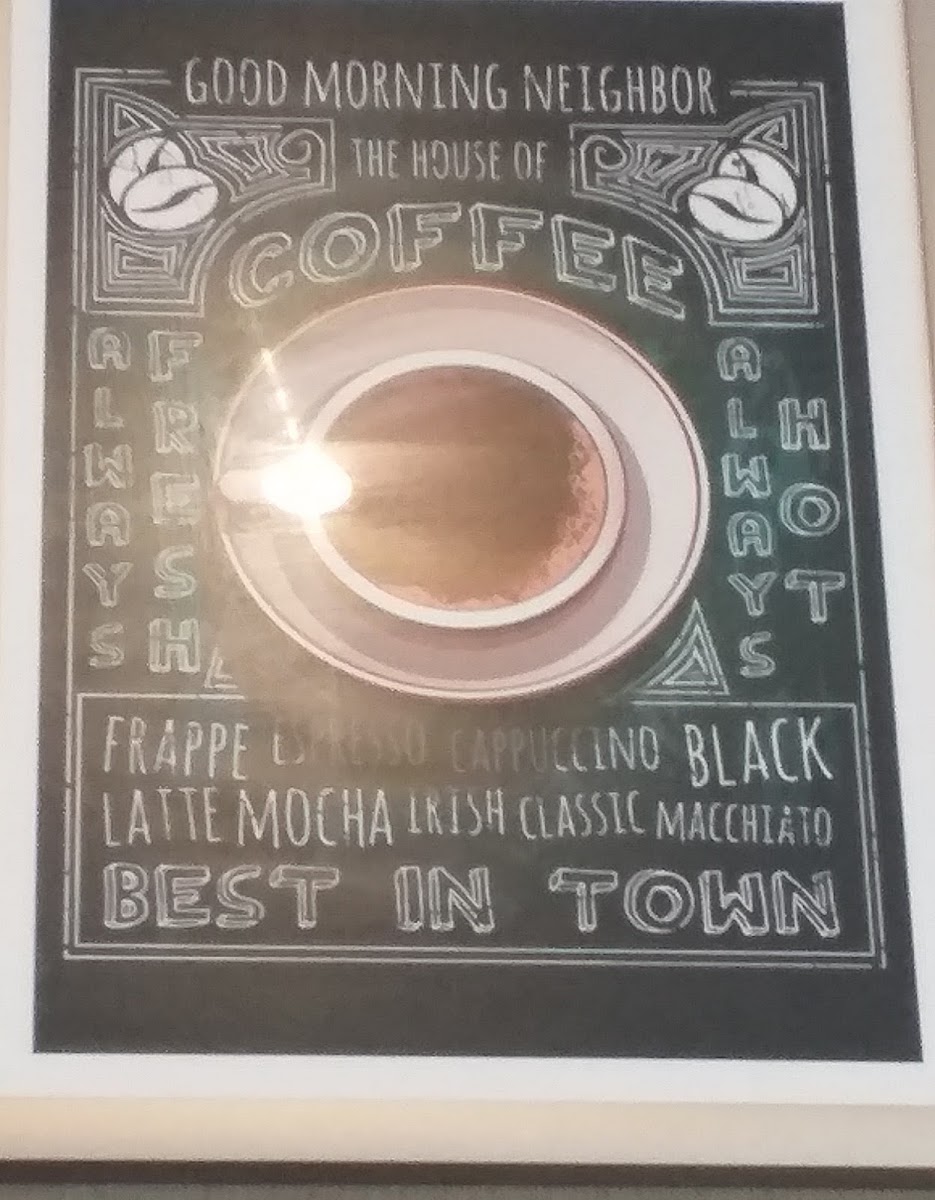 GOOD MORNING NEIGHBOR
THE HOUSE OF
COFFEE
ALWAYS
FRESH
ALWAYS
HOT
FRAPPE ESPRESSO CAPPUCCINO BLACK
LATTE MOCHA IRISH CLASSIC MACCHIATO
BEST IN TOWN